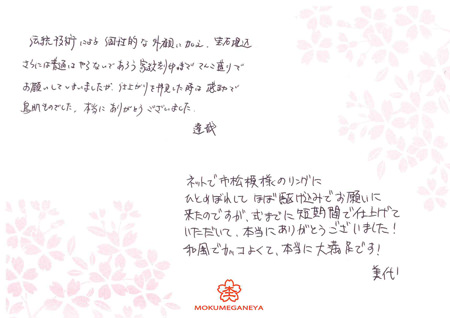 伝統技術による個性的な外観に加え、宝石埋込
さらには普通はやらないであろう家紋刻印まで てんこ盛りで
お願いしてしまいましたが、仕上がりを拝見した時は感動で
鳥肌ものでした。本当にありがとうございました。
達哉
ネットで市松模様のリングに
ひとめぼれして ほぼ駆け込みでお願いに
来たのですが、式までに短期間で仕上げて
いただいて、本当にありがとうございました！
和風でカッコよくて、本当に大満足です！
美代
MOKUMEGANEYA